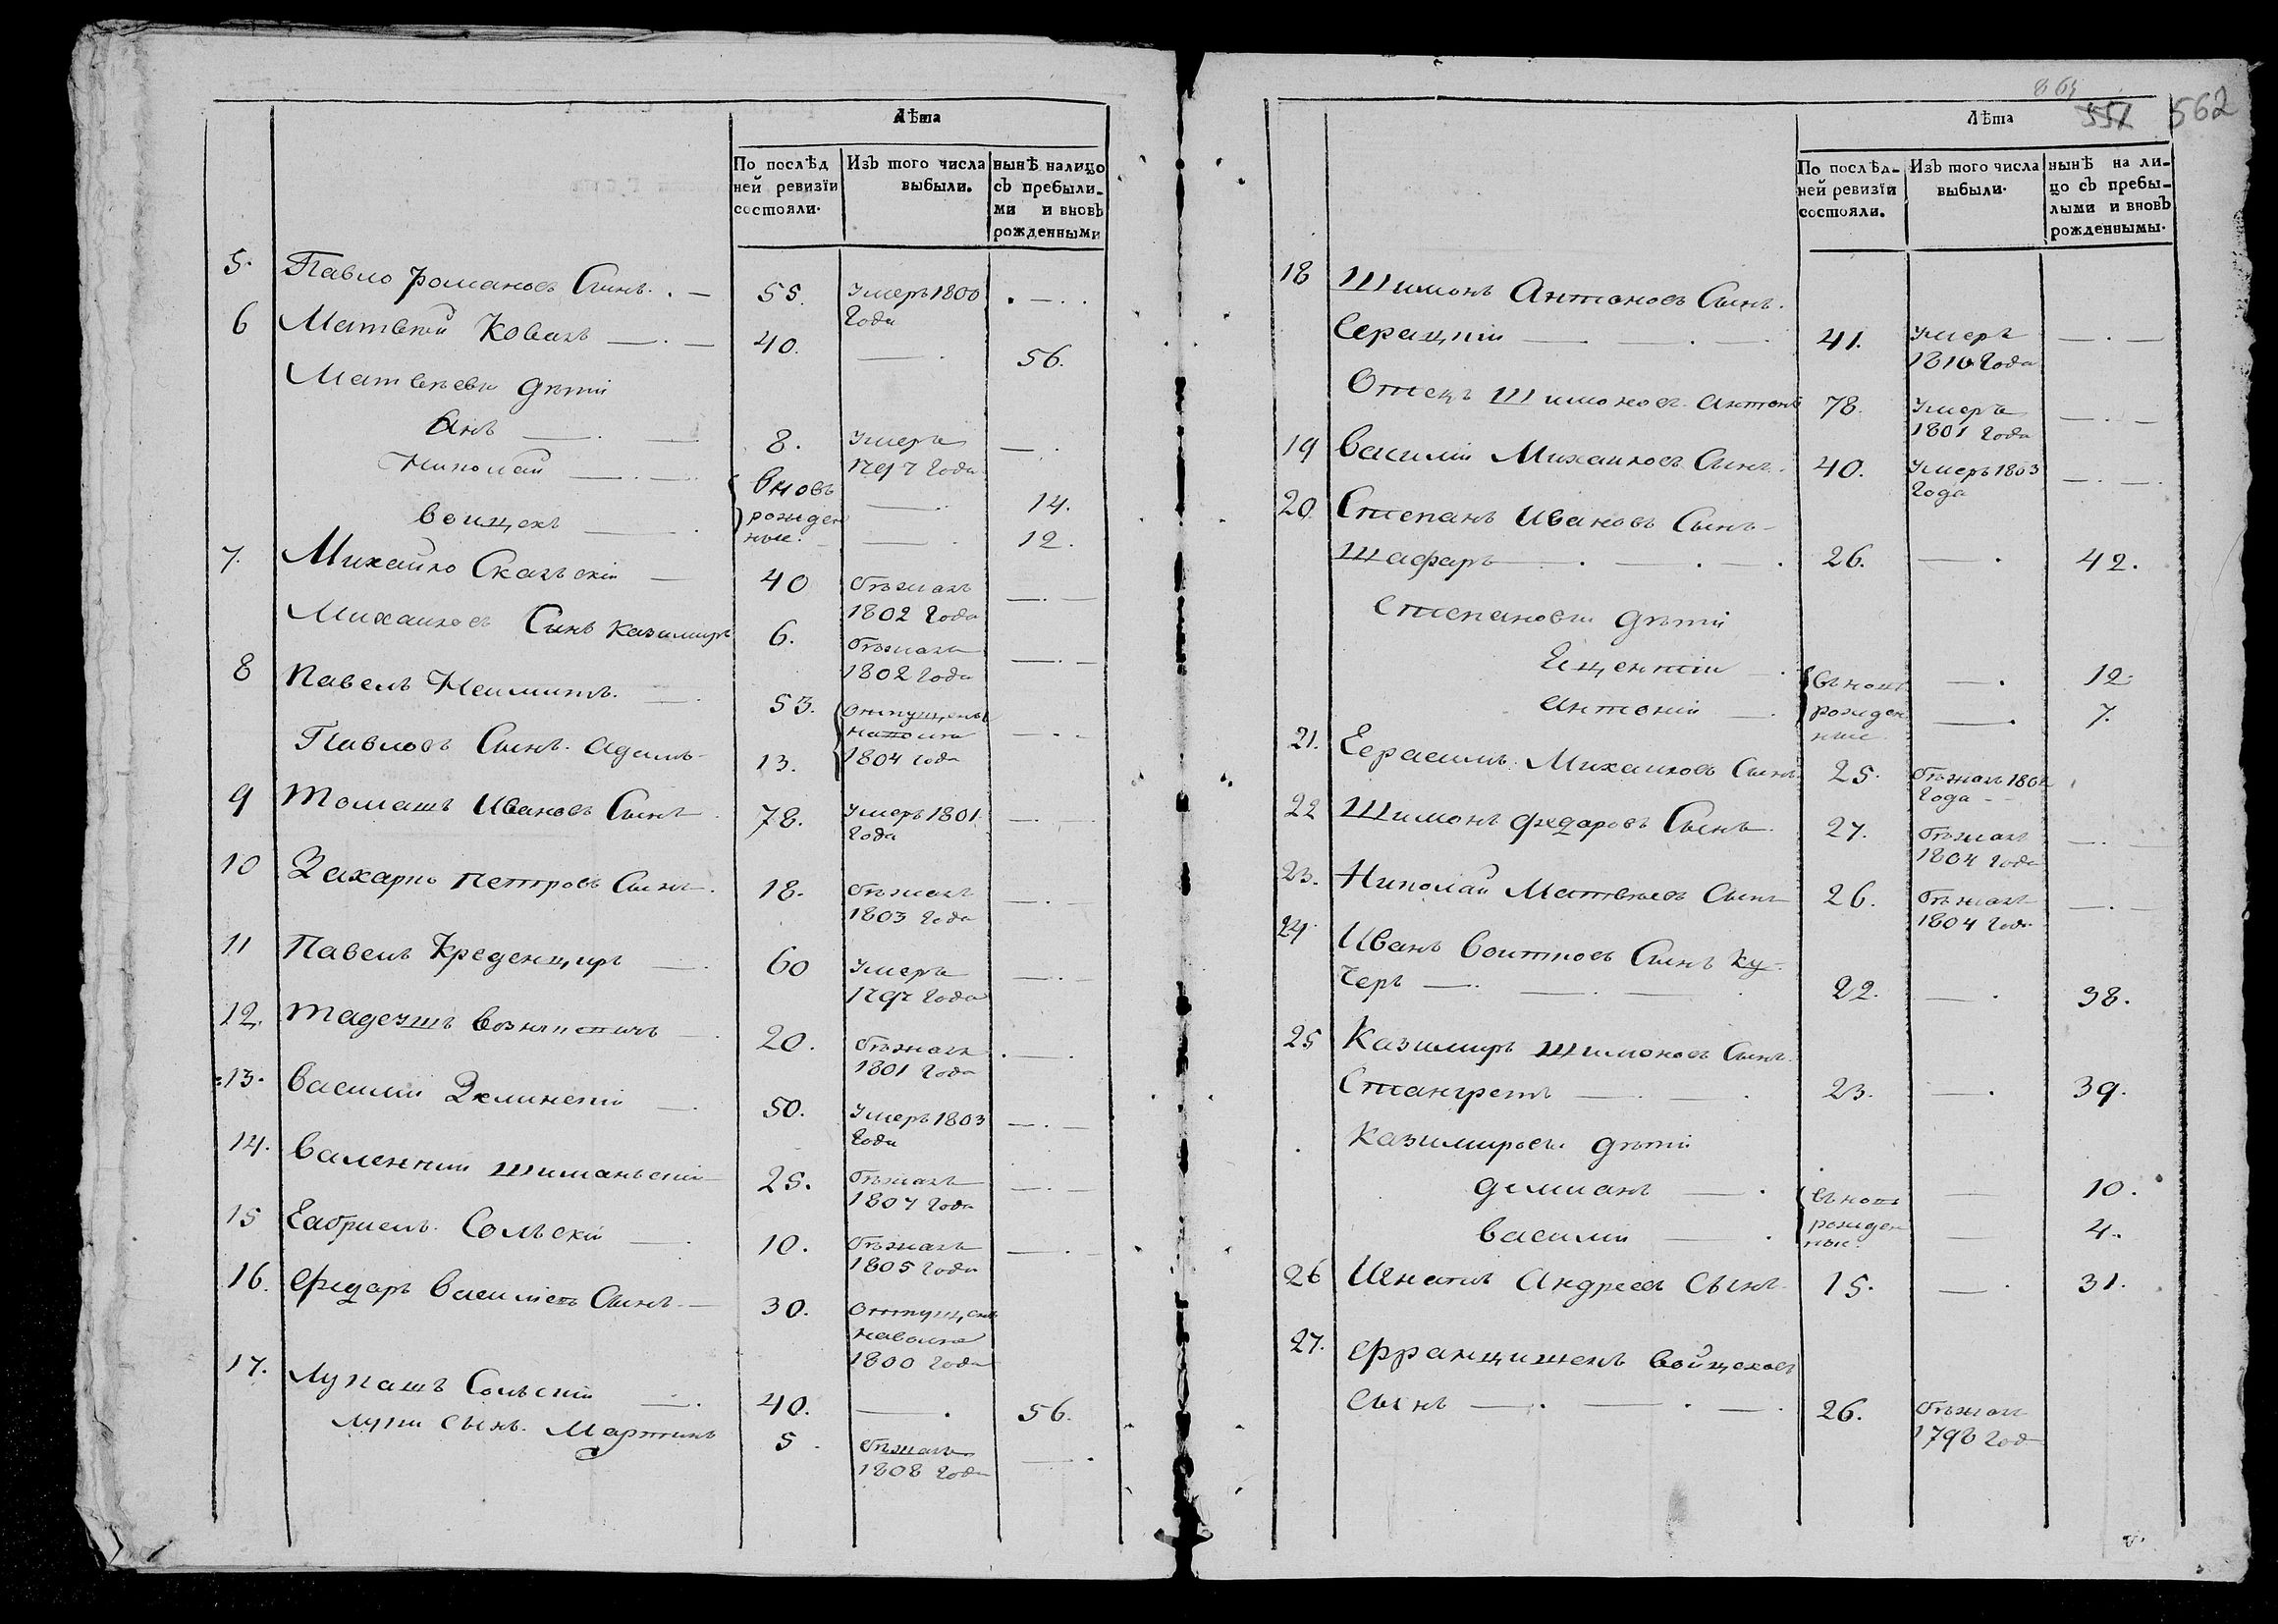 Лѣта
По послѣд
ней ревизїи
состояли.
Изъ того числа
выбыли.
нынѣ налицо
съ пребыли-
ми и вновъ
рожденными
5. Павло романовъ Сынъ. 55. Умеръ 1800
Года
6 Матвѣй Ковахъ 40. 56.
Матвѣевы дѣти
Янъ 8. Умеръ
1797 Года
Николай вновъ 14.
рожден
ные.
воицехъ 12.
7. Михайло Скальскій 40 бѣжалъ
1802 Года
Михаиловъ Сынъ Казимиръ 6. бѣжалъ
1802 Года
8 Павелъ 53. отпущенъ
1804 года
Павловъ Сынъ Адамъ 13.
9 Томашъ Ивановъ Сынъ 78. Умеръ 1801
Года
10 Захарко Петровъ Сынъ 18. бѣжалъ
1803 Года
11 Павелъ Креденциръ 60 Умеръ
1797 Года
12. Тадеушъ 20. бѣжалъ
1801 Года
13. Василій 50. Умеръ 1803
Года
14. Валентій Шиманьскій 25. бѣжалъ
1807 Года
15 Габріель Сольскій 10. бѣжалъ
1805 Года
16. Ѳедаръ Василіевъ Сынъ 30. отпущенъ
1800 Года
17. Лукашъ Сольскій 40. 56.
Луки Сынъ Мартинъ 5. бѣжалъ
1808 Года
861
551 562
Лѣта
По послѣд-
ней ревизїи
состояли.
Изъ того числа
выбыли.
нынѣ на ли-
цо съ пребы-
лыми и вновъ
рожденнымы.
18 Шимонъ Антоновъ Сынъ
41. Умеръ
1810 Года
Отецъ Шимоновъ Антонъ 78. Умеръ
1801 Года
19 Василій Михаиловъ Сынъ 40. Умеръ 1803
Года
20. Степанъ Ивановъ Сынъ
Шафаръ 26. 42.
Степановы дѣти
Ецентій 12.
рожден
ные
Антоній 7.
21. Герасимъ Михаиловъ Сынъ 25. бѣжалъ
Года
22 Шимонъ Ѳедаровъ Сынъ 27. бѣжалъ
1804 Года
23. Николай Матвѣевъ Сынъ 26. бѣжалъ
1804 Года
24. Иванъ Войтковъ Сынъ Ку-
черъ 22. 38.
25 Казимиръ Шимоновъ Сынъ
Стангретъ 23. 39.
Казимировы дѣти
Демианъ 10.
рожден
ные.
Василій 4.
26 Игнатій Андреевъ Сынъ 15. 31.
27. Францишекъ Войцеховъ
Сынъ 26. бѣжалъ
1798 Год